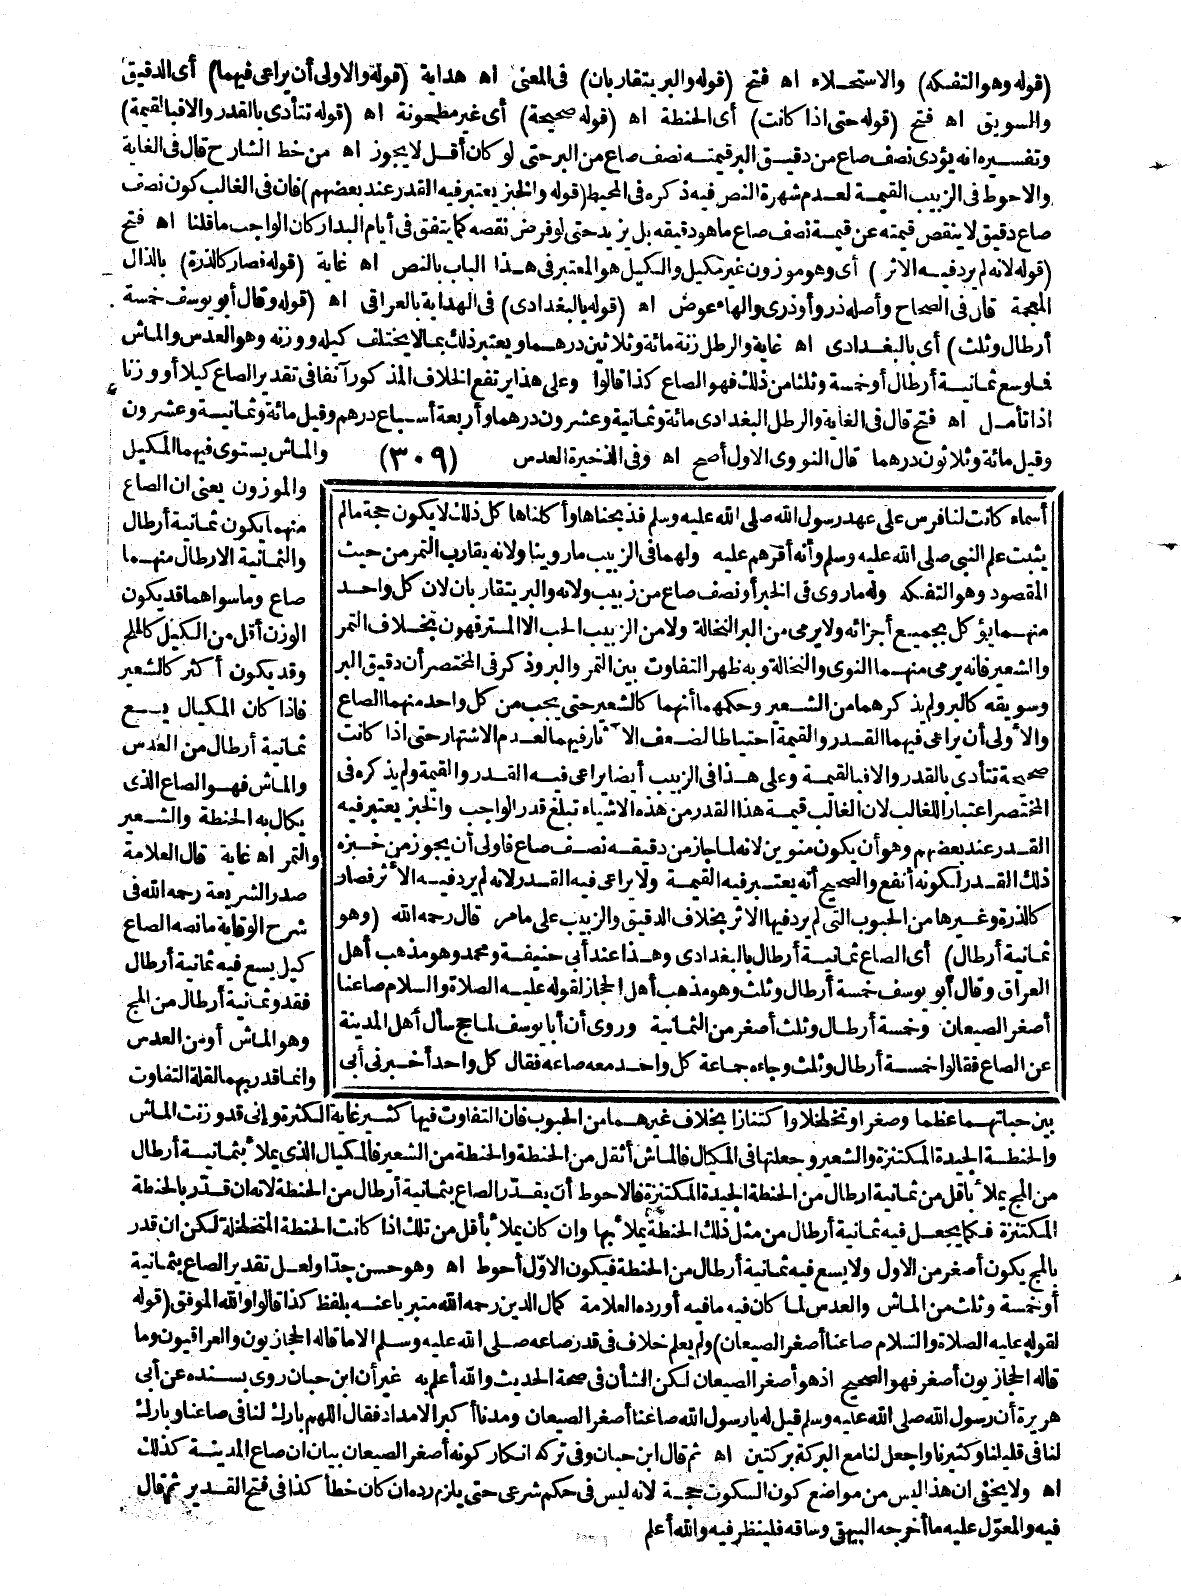 (قوله وهو التفكه) والاستحلاء اه فتح (قوله والبر يتقاربان) فى المعنى اه هداية (قوله والاولى أن يراعى فيهما) أى الدقيق
والسويق اه فتح (قوله حتى اذا كانت) أى الحنطة اه (قوله صحيحة) أى غير مطحونة اه (قوله تتأدى بالقدر والافبالقيمة)
وتفسيره انه يؤدى نصف صاع من دقيق البر قيمته نصف صاع من البر حتى لو كان أقل لا يجوز اه من خط الشارح قال فى الغاية
والاحوط فى الزبيب القيمة لعدم شهرة النص فيه ذكره فى المحيط (قوله والخبز يعتبر فيه القدر عند بعضهم) فان فى الغالب كون نصف
صاع دقيق لا ينقص قيمته عن قيمة نصف صاع ما هو دقيقه بل يزيد حتى لو فرض نقصه كما يتفق فى أيام البدار كان الواجب ما قلنا اه فتح
(قوله لانه لم يرد فيه الاثر) أى وهو موزون غير مكيل والكيل هو المعتبر فى هذا الباب بالنص اه غاية (قوله فصار كالذرة) بالذال
المعجمة قال فى الصحاح وأصله ذرو أو ذرى والهاء عوض اه (قوله بالبغدادى) فى الهداية بالعراقى اه (قوله وقال أبو يوسف خمسة
أرطال وثلث) أى بالبغدادى اه غاية والرطل زنة مائة وثلاثين درهما ويعتبر ذلك بما لا يختلف كيله ووزنه وهو العدس والماش
فاوسع ثمانية أرطال أو خمسة وثلثا من ذلك فهو الصاع كذا قالوا وعلى هذا يرتفع الخلاف المذكور آنفا فى تقدير الصاع كيلا أو وزنا
اذا تأمل اه فتح قال فى الغاية والرطل البغدادى مائة وثمانية وعشرون درهما وأربعة أسباع درهم وقيل مائة وثمانية وعشرون
وقيل مائة وثلاثون درهما قال النووى الاول أصح اه وفى الذخيرة العدس (٣٠٩) والماش يستوى فيهما المكيل
والموزون يعنى ان الصاع
منهما يكون ثمانية أرطال
والثمانية الارطال منهما
صاع وما سواهما قد يكون
الوزن أقل من الكيل كالملح
وقد يكون أكثر كالشعير
فاذا كان المكيال يسع
ثمانية أرطال من العدس
والماش فهو الصاع الذى
يكال به الحنطة والشعير
والتمر اه غاية قال العلامة
صدر الشريعة رحمه الله فى
شرح الوقاية ما نصه الصاع
كيل يسع فيه ثمانية أرطال
فقدر ثمانية أرطال من المج
وهو الماش أو من العدس
وانما قدر بهما لقلة التفاوت
أسماء كانت لنا فرس على عهد رسول الله صلى الله عليه وسلم فذبحناها وأكلناها كل ذلك لا يكون حجة مالم
يثبت علم النبى صلى الله عليه وسلم وأنه أقرهم عليه ولهما فى الزبيب ما روينا ولانه يقارب التمر من حيث
المقصود وهو التفكه وله ما روى فى الخبر أو نصف صاع من زبيب ولانه والبر يتقاربان لان كل واحد
منهما يؤكل بجميع أجزائه ولا يرمى من البر النخالة ولا من الزبيب الحب الا المترفهون بخلاف التمر
والشعير فانه يرمى منهما النوى والنخالة وبه ظهر التفاوت بين التمر والبر وذكر فى المختصر أن دقيق البر
وسويقه كالبر ولم يذكرهما من الشعير وحكمهما أنهما كالشعير حتى يجب من كل واحد منهما الصاع
والأولى أن يراعى فيهما القدر والقيمة احتياطا لضعف الآثار فيهما لعدم الاشتهار حتى اذا كانت
صحيحة تتأدى بالقدر والافبالقيمة وعلى هذا فى الزبيب أيضا يراعى فيه القدر والقيمة ولم يذكره فى
المختصر اعتبارا للغالب لان الغالب قيمة هذا القدر من هذه الاشياء تبلغ قدر الواجب والخبز يعتبر فيه
القدر عند بعضهم وهو أن يكون منوين لانه لما جاز من دقيقه نصف صاع فاولى أن يجوز من خبزه
ذلك القدر لكونه أنفع والصحيح أنه يعتبر فيه القيمة ولا يراعى فيه القدر لانه لم يرد فيه الأثر فصار
كالذرة وغيرها من الحبوب التى لم يرد فيها الاثر بخلاف الدقيق والزبيب على ما مر قال رحمه الله (وهو
ثمانية أرطال) أى الصاع ثمانية أرطال بالبغدادى وهذا عند أبى حنيفة ومحمد وهو مذهب أهل
العراق وقال أبو يوسف خمسة أرطال وثلث وهو مذهب أهل الحجاز لقوله عليه الصلاة والسلام صاعنا
أصغر الصيعان وخمسة أرطال وثلث أصغر من الثمانية وروى أن أبا يوسف لما حج سأل أهل المدينة
عن الصاع فقالوا خمسة أرطال وثلث وجاءه جماعة كل واحد معه صاعه فقال كل واحد أخبرنى أبى
بين حباتهما عظما وصغرا وتخلخلا واكتنازا بخلاف غيرهما من الحبوب فان التفاوت فيها كثير غاية الكثرة وإنى قد وزنت الماش
والحنطة الجيدة المكتنزة والشعير وجعلتها فى المكيال فالماش أثقل من الحنطة والحنطة من الشعير فالمكيال الذى يملأ بثمانية أرطال
من المج يملأ بأقل من ثمانية ارطال من الحنطة الجيدة المكتنزة فالاحوط أن يقدر الصاع بثمانية أرطال من الحنطة لانه ان قدر بالحنطة
المكتنزة فكما يجعل فيه ثمانية أرطال من مثل ذلك الحنطة يملأ بها وان كان يملأ بأقل من تلك اذا كانت الحنطة المتخلخلة لكن ان قدر
بالمج يكون أصغر من الاول ولا يسع فيه ثمانية أرطال من الحنطة فيكون الاول أحوط اه وهو حسن جدا ولعل تقدير الصاع بثمانية
أو خمسة وثلث من الماش والعدس لما كان فيه ما فيه أورده العلامة كمال الدين رحمه الله متبريا عنه بلفظ كذا قالوا والله الموفق (قوله
لقوله عليه الصلاة والسلام صاعنا أصغر الصيعان) ولم يعلم خلاف فى قدر صاعه صلى الله عليه وسلم الا ما قاله الحجازيون والعراقيون وما
قاله الحجازيون أصغر فهو الصحيح اذ هو أصغر الصيعان لكن الشأن فى صحة الحديث والله أعلم به غير أن ابن حبان روى بسنده عن أبى
هريرة أن رسول الله صلى الله عليه وسلم قيل له يا رسول الله صاعنا أصغر الصيعان ومدنا أكبر الامداد فقال اللهم بارك لنا فى صاعنا وبارك
لنا فى قليلنا وكثيرنا واجعل لنا مع البركة بركتين اه ثم قال ابن حبان وفى تركه انكار كونه أصغر الصيعان بيان ان صاع المدينة كذلك
اه ولا يخفى ان هذا ليس من مواضع كون السكوت حجة لانه ليس فى حكم شرعى حتى يلزم رده ان كان خطأ كذا فى فتح القدير ثم قال
فيه والمعول عليه ما أخرجه البيهقى وساقه فلينظر فيه والله أعلم